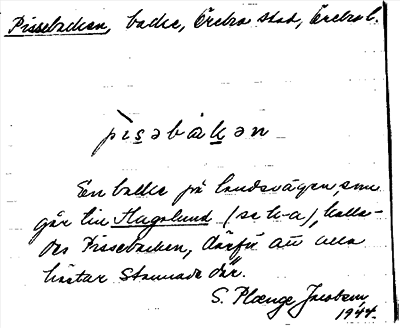 Pissebacken, backe, Örebro stad, Örebro l.
pɪsəbakən
En backe på landsvägen, som
går till Hagalund (se h-a), kalla-
des Pissebacken, därför att alla
hästar stannade där.
S. Plænge Jacobson
1944.